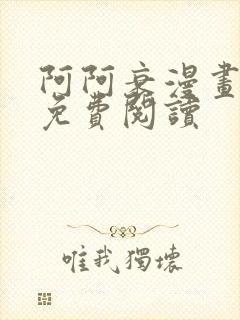 阿阿衰漫畫
免費閱讀
唯我獨壞